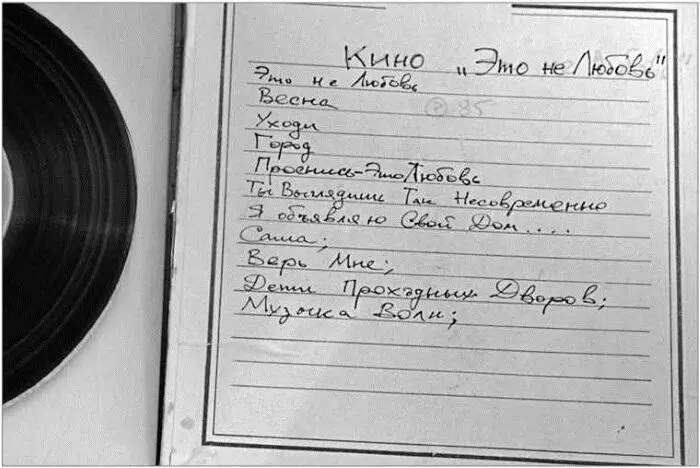 Кино „Это не Любовь"
Это не Любовь
Весна
℗ 85
Уходи
Город
Проснись-Это Любовь
Ты Выглядишь Так Несовременно
Я объявляю Свой Дом....
Саша;
Верь Мне;
Дети Проходных Дворов;
Музыка Волн;